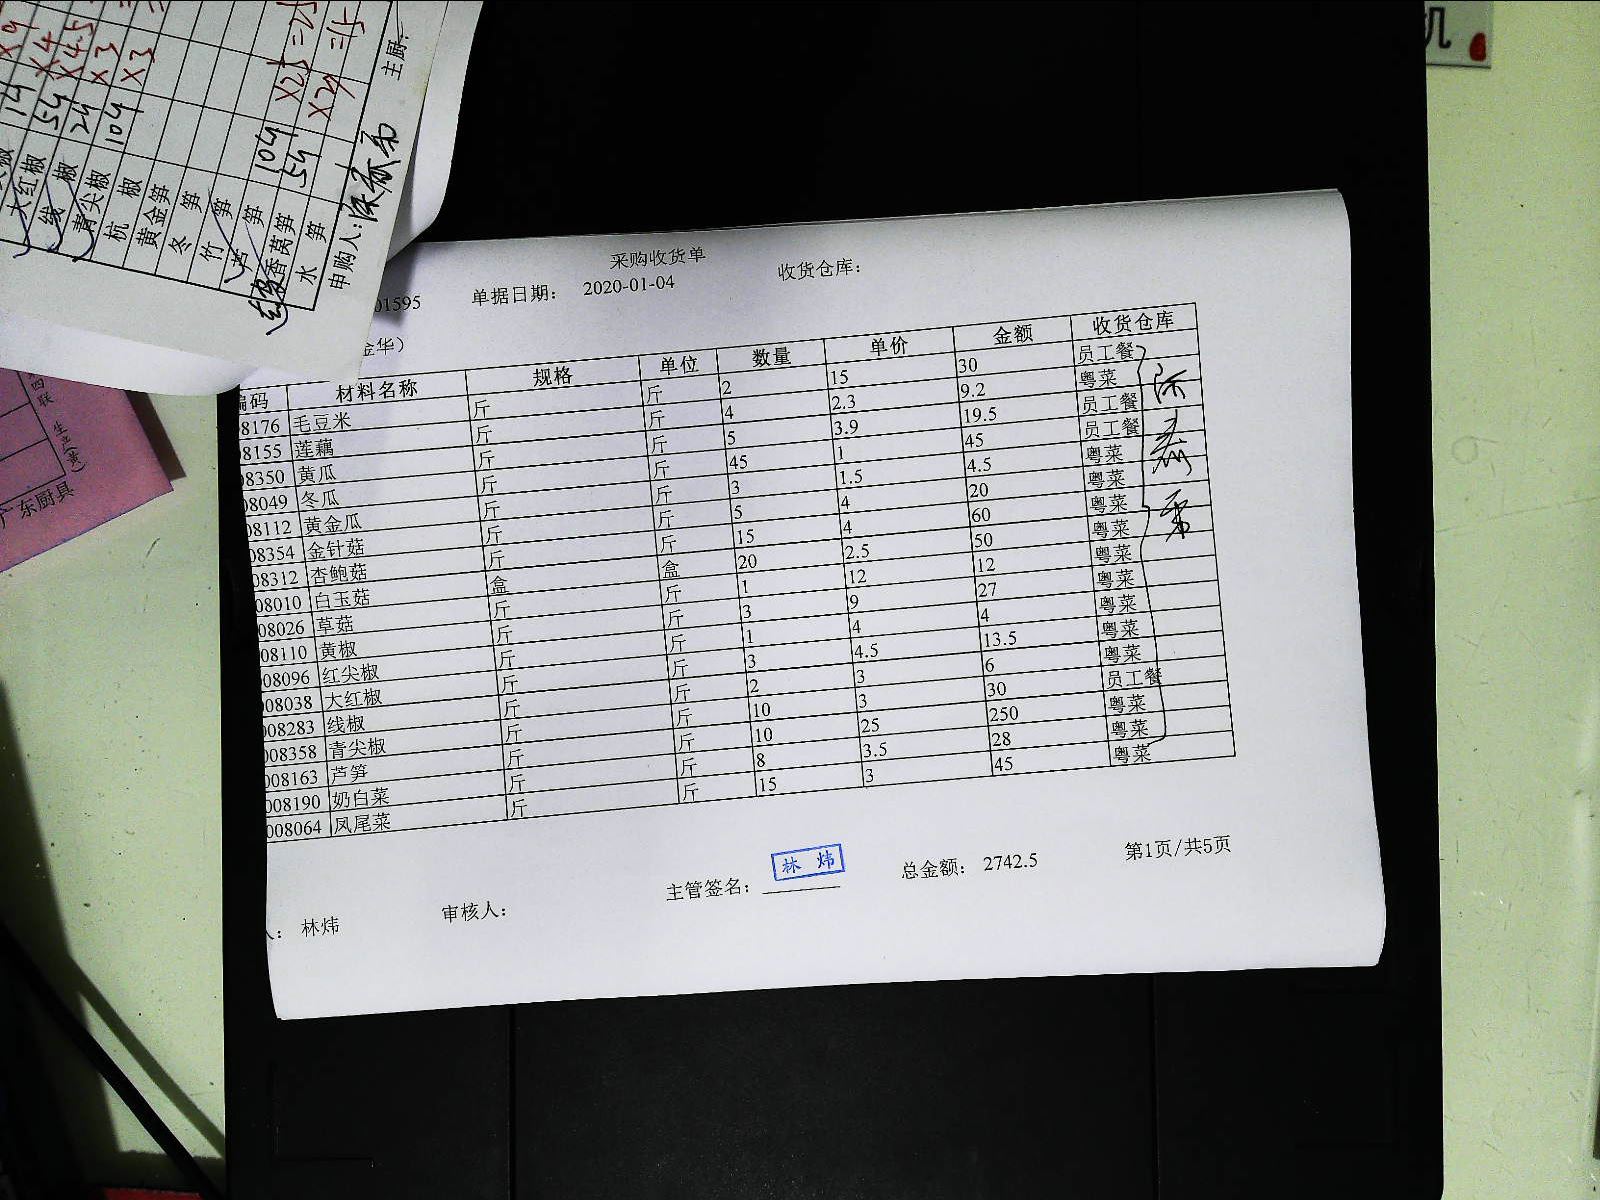 大红椒 5斤 X4
线椒 2斤 X4.5
青尖椒 10斤 X3
杭椒
黄金笋
冬笋
竹笋
芦笋 10斤 X25
香莴笋 5斤
水笋
申购人:
主厨:
四联
生产(黄)
广东厨具
机
采购收货单
01595 单据日期: 2020-01-04 收货仓库:
金华)
编码 材料名称 规格 单位 数量 单价 金额 收货仓库
08176 毛豆米 斤 斤 2 15 30 员工餐
08155 莲藕 斤 斤 4 2.3 9.2 粤菜
08350 黄瓜 斤 斤 5 3.9 19.5 员工餐
08049 冬瓜 斤 斤 45 1 45 员工餐
08112 黄金瓜 斤 斤 3 1.5 4.5 粤菜
08354 金针菇 斤 斤 5 4 20 粤菜
08312 杏鲍菇 斤 斤 15 4 60 粤菜
08010 白玉菇 盒 盒 20 2.5 50 粤菜
08026 草菇 斤 斤 1 12 12 粤菜
08110 黄椒 斤 斤 3 9 27 粤菜
08096 红尖椒 斤 斤 1 4 4 粤菜
08038 大红椒 斤 斤 3 4.5 13.5 粤菜
08283 线椒 斤 斤 2 3 6 粤菜
08358 青尖椒 斤 斤 10 3 30 员工餐
08163 芦笋 斤 斤 10 25 250 粤菜
08190 奶白菜 斤 斤 8 3.5 28 粤菜
08064 凤尾菜 斤 斤 15 3 45 粤菜
人: 林炜 审核人: 主管签名: 林 炜 总金额: 2742.5 第1页/共5页